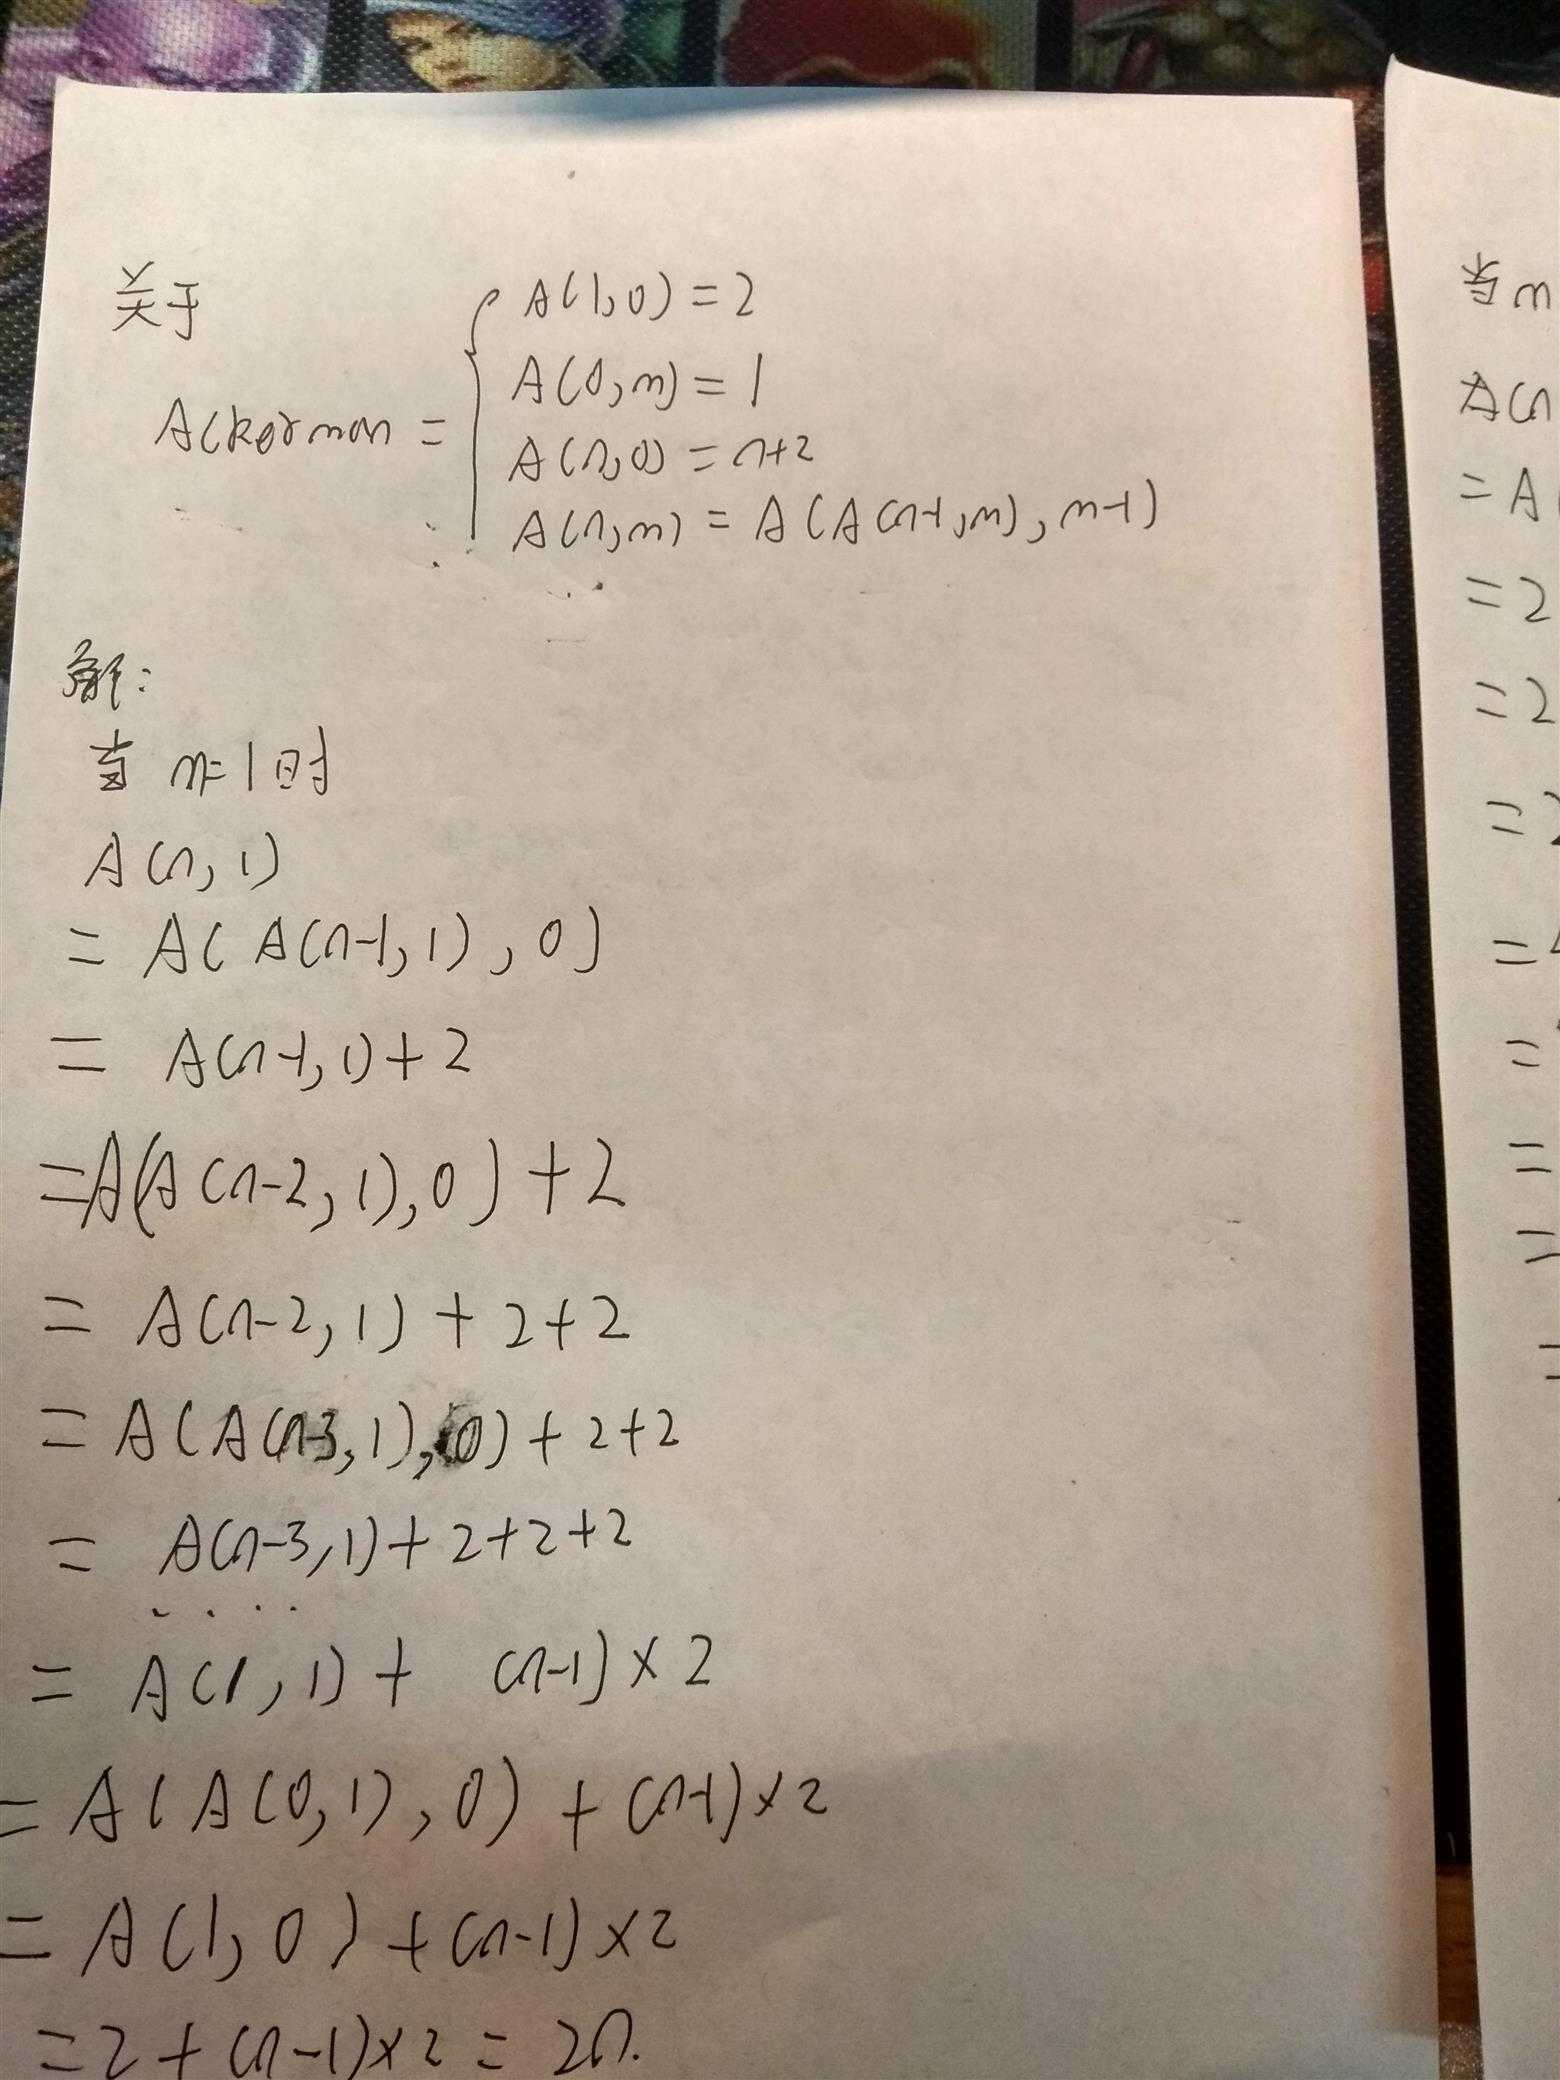 关于
Ackerman =
A(1,0) = 2
A(0,m) = 1
A(n,0) = n+2
A(n,m) = A(A(n-1,m), m-1)
解:
当 m=1时
A(n,1)
= A( A(n-1,1), 0)
= A(n-1,1)+2
=A(A(n-2,1),0)+2
= A(n-2,1) + 2+2
= A(A(n-3,1),0)+2+2
= A(n-3,1)+2+2+2
....
= A(1,1)+ (n-1)×2
= A(A(0,1),0) + (n-1)×2
= A(1,0)+(n-1)×2
=2+(n-1)×2 = 2n.
当m
A(n
= A
= 2
= 2
= 2
=
=
=
=
=